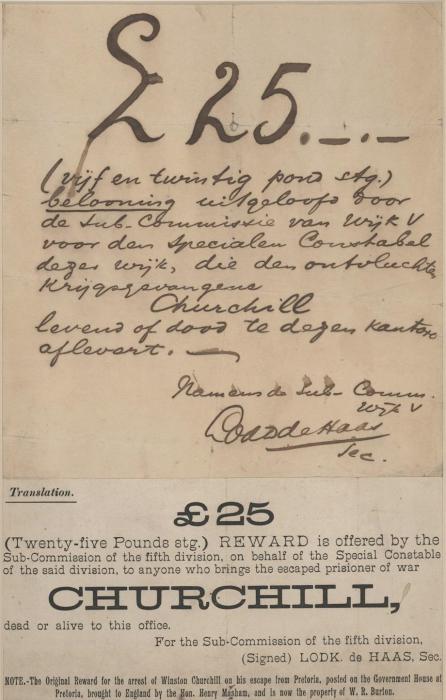 £25.-.-
(vijf en twintig pond stg.)
belooning uitgeloofd door
de Sub-Commissie van Wijk V
voor den Specialen Constabel
dezer wijk, die den ontvluchte
Krijgsgevangene
Churchill
levend of dood te dezen kantore
aflevert.
Namens de Sub-Comm.
Wijk V
Lodk de Haas
Sec.
Translation.
£25
(Twenty-five Pounds stg.) REWARD is offered by the
Sub-Commission of the fifth division, on behalf of the Special Constable
of the said division, to anyone who brings the escaped prisioner of war
CHURCHILL,
dead or alive to this office.
For the Sub-Commission of the fifth division,
(Signed) LODK. de HAAS, Sec.
NOTE.-The Original Reward for the arrest of Winston Churchill on his escape from Pretoria, posted on the Government House at
Pretoria, brought to England by the Hon. Henry Masham, and is now the property of W. R. Burton.